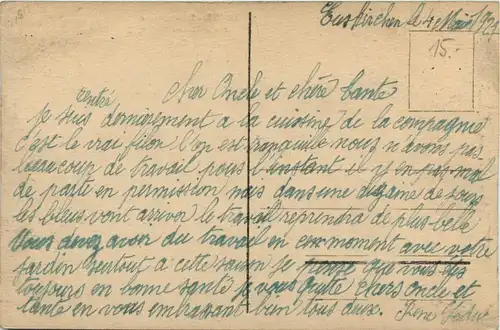 Euskirchen le 4 Mai 1921
15.-
Cher Oncle et chère Tante
je suis dernièrement entré a la cuisine de la compagnie
c'est le vrai filon l'on est tranquille nous n'avons pas
beaucoup de travail pour l'instant il y en pas mal
de parti en permission mais dans une dizaine de jours
les bleus vont arriver le travail reprendra de plus belle
Vous devez avoir du travail en ce moment avec votre
jardin surtout a cette saison je pense que vous êtes
toujours en bonne santé je vous quitte chers oncle et
tante en vous embrassant bien tous deux.